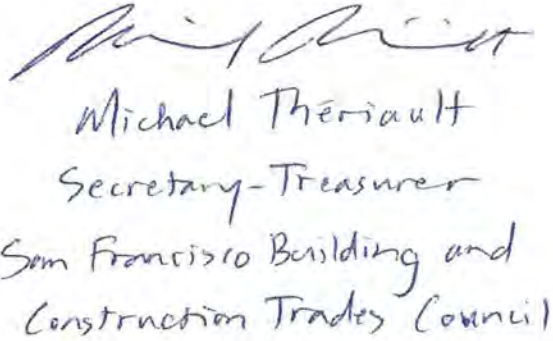 Michael Thériault
Secretary-Treasurer
San Francisco Building and
Construction Trades Council